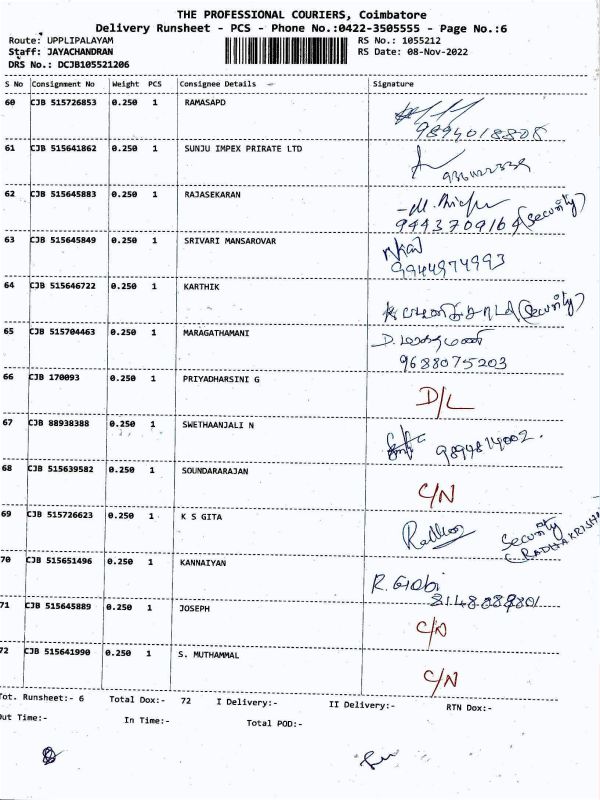 THE PROFESSIONAL COURIERS, Coimbatore
Delivery Runsheet - PCS - Phone No.:0422-3505555 - Page No.:6
Route: UPPLIPALAYAM RS No.: 1055212
Staff: JAYACHANDRAN RS Date: 08-Nov-2022
DRS No.: DCJB105521206
S No Consignment No Weight PCS Consignee Details Signature
60 CJB 515726853 0.250 1 RAMASAPD
9894018805
61 CJB 515641862 0.250 1 SUNJU IMPEX PRIRATE LTD
62 CJB 515645883 0.250 1 RAJASEKARAN
9443709164 (Security)
63 CJB 515645849 0.250 1 SRIVARI MANSAROVAR
9944974993
64 CJB 515646722 0.250 1 KARTHIK
(Security)
65 CJB 515704463 0.250 1 MARAGATHAMANI
9688075203
66 CJB 170093 0.250 1 PRIYADHARSINI G
D/L
67 CJB 88938388 0.250 1 SWETHAANJALI N
9894814002.
68 CJB 515639582 0.250 1 SOUNDARARAJAN
C/N
69 CJB 515726623 0.250 1 K S GITA
Security
70 CJB 515651496 0.250 1 KANNAIYAN
R. Gobi
71 CJB 515645889 0.250 1 JOSEPH
C/N
72 CJB 515641990 0.250 1 S. MUTHAMMAL
C/N
Tot. Runsheet:- 6 Total Dox:- 72 I Delivery:- II Delivery:- RTN Dox:-
Out Time:- In Time:- Total POD:-